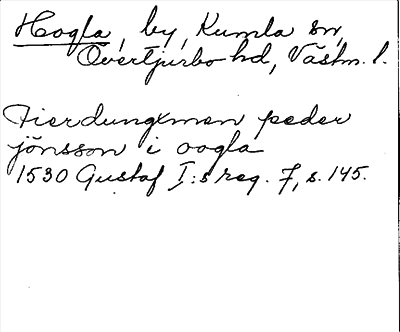 Hogla, by, Kumla sn,
Övertjurbo hd, Västm. l.
Fierdungxmen peder
jönsson i oogla
1530 Gustaf I:s reg. 7, s. 145.